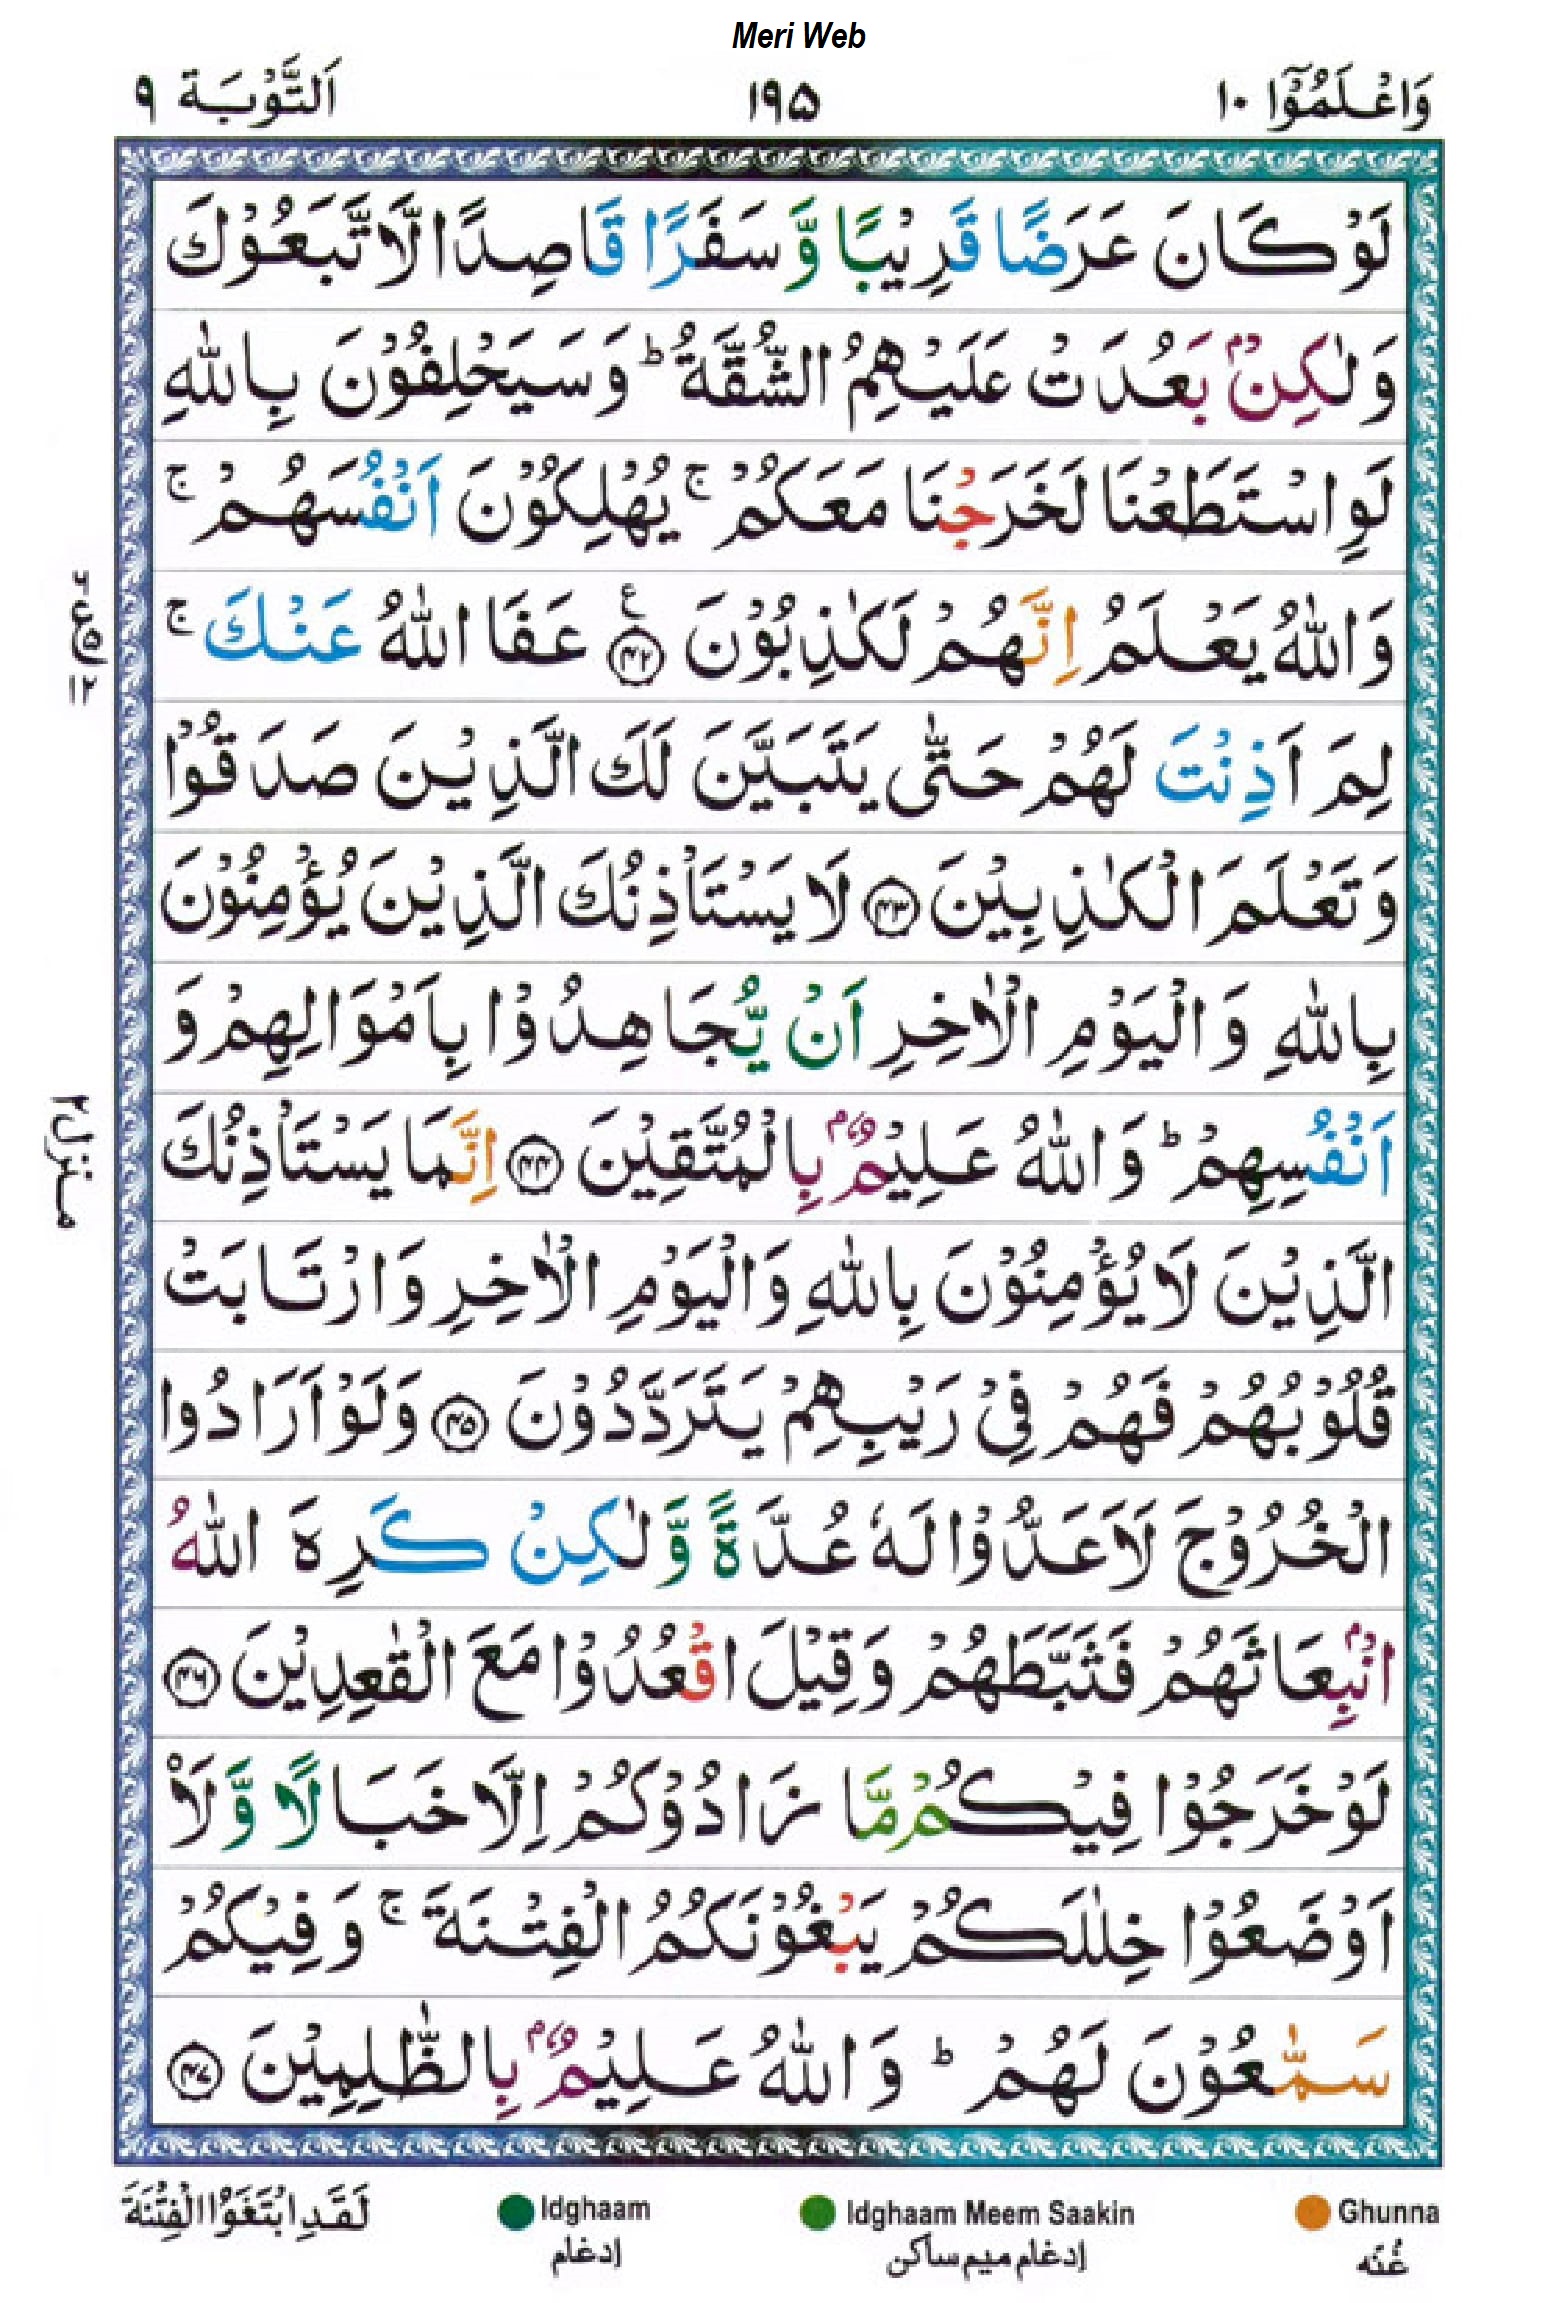 Meri Web
وَاعْلَمُوْٓا ١٠
١٩٥
اَلتَّوْبَة ٩
لَوْ كَانَ عَرَضًا قَرِيْبًا وَّ سَفَرًا قَاصِدًا الَّا تَّبَعُوْكَ
وَلٰكِنْۢ بَعُدَتْ عَلَيْهِمُ الشُّقَّةُ ؕ وَسَيَحْلِفُوْنَ بِاللّٰهِ
لَوِ اسْتَطَعْنَا لَخَرَجْنَا مَعَكُمْ ۚ يُهْلِكُوْنَ اَنْفُسَهُمْ ۚ
وَاللّٰهُ يَعْلَمُ اِنَّهُمْ لَكٰذِبُوْنَ ﴿۴۲﴾ ع عَفَا اللّٰهُ عَنْكَ ۚ
لِمَ اَذِنْتَ لَهُمْ حَتّٰى يَتَبَيَّنَ لَكَ الَّذِيْنَ صَدَقُوْا
وَتَعْلَمَ الْكٰذِبِيْنَ ﴿۴۳﴾ لَا يَسْتَاْذِنُكَ الَّذِيْنَ يُؤْمِنُوْنَ
بِاللّٰهِ وَالْيَوْمِ الْاٰخِرِ اَنْ يُّجَاهِدُوْا بِاَمْوَالِهِمْ وَ
اَنْفُسِهِمْ ؕ وَاللّٰهُ عَلِيْمٌۢ بِالْمُتَّقِيْنَ ﴿۴۴﴾ اِنَّمَا يَسْتَاْذِنُكَ
الَّذِيْنَ لَا يُؤْمِنُوْنَ بِاللّٰهِ وَالْيَوْمِ الْاٰخِرِ وَارْتَابَتْ
قُلُوْبُهُمْ فَهُمْ فِيْ رَيْبِهِمْ يَتَرَدَّدُوْنَ ﴿۴۵﴾ وَلَوْ اَرَادُوا
الْخُرُوْجَ لَاَعَدُّوْا لَهٗ عُدَّةً وَّلٰكِنْ كَرِهَ اللّٰهُ
انْۢبِعَاثَهُمْ فَثَبَّطَهُمْ وَقِيْلَ اقْعُدُوْا مَعَ الْقٰعِدِيْنَ ﴿۴۶﴾
لَوْ خَرَجُوْا فِيْكُمْ مَّا زَادُوْكُمْ اِلَّا خَبَالًا وَّلَا۠
اَوْضَعُوْا خِلٰلَكُمْ يَبْغُوْنَكُمُ الْفِتْنَةَ ۚ وَفِيْكُمْ
سَمّٰعُوْنَ لَهُمْ ؕ وَاللّٰهُ عَلِيْمٌۢ بِالظّٰلِمِيْنَ ﴿۴۷﴾
منزل۲
لَقَدِ ابْتَغَوُا الْفِتْنَةَ
Idghaam
إدغام
Idghaam Meem Saakin
إدغام ميم ساكن
Ghunna
غُنّه